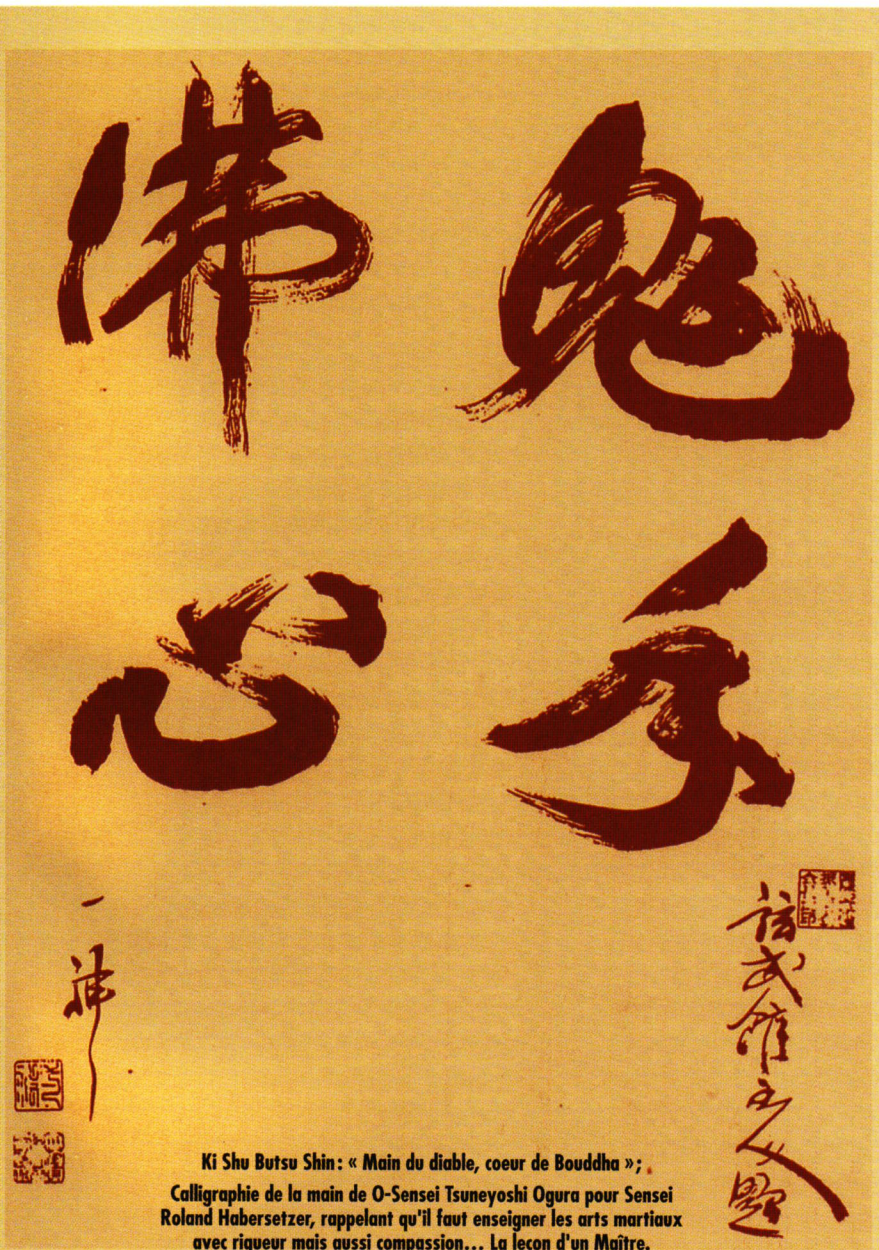 鬼手
佛心
武館主人題
一
Ki Shu Butsu Shin : « Main du diable, coeur de Bouddha » ;
Calligraphie de la main de O-Sensei Tsuneyoshi Ogura pour Sensei
Roland Habersetzer, rappelant qu'il faut enseigner les arts martiaux
avec rigueur mais aussi compassion... La leçon d'un Maître.